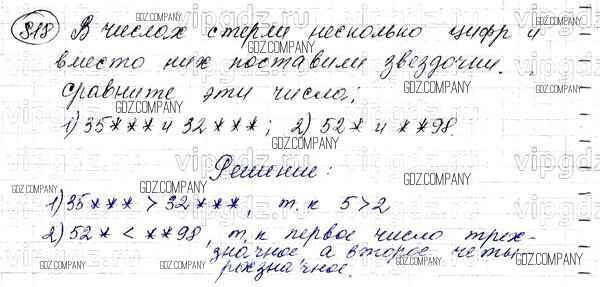 818 В числах стерли несколько цифр и
вместо них поставили звездочки.
Сравните эти числа:
1) 35*** и 32***; 2) 52* и **98.
Решение:
1) 35*** > 32***, т.к 5>2
2) 52* < **98, т.к первое число трех-
значное а второе четы
рехзначное.